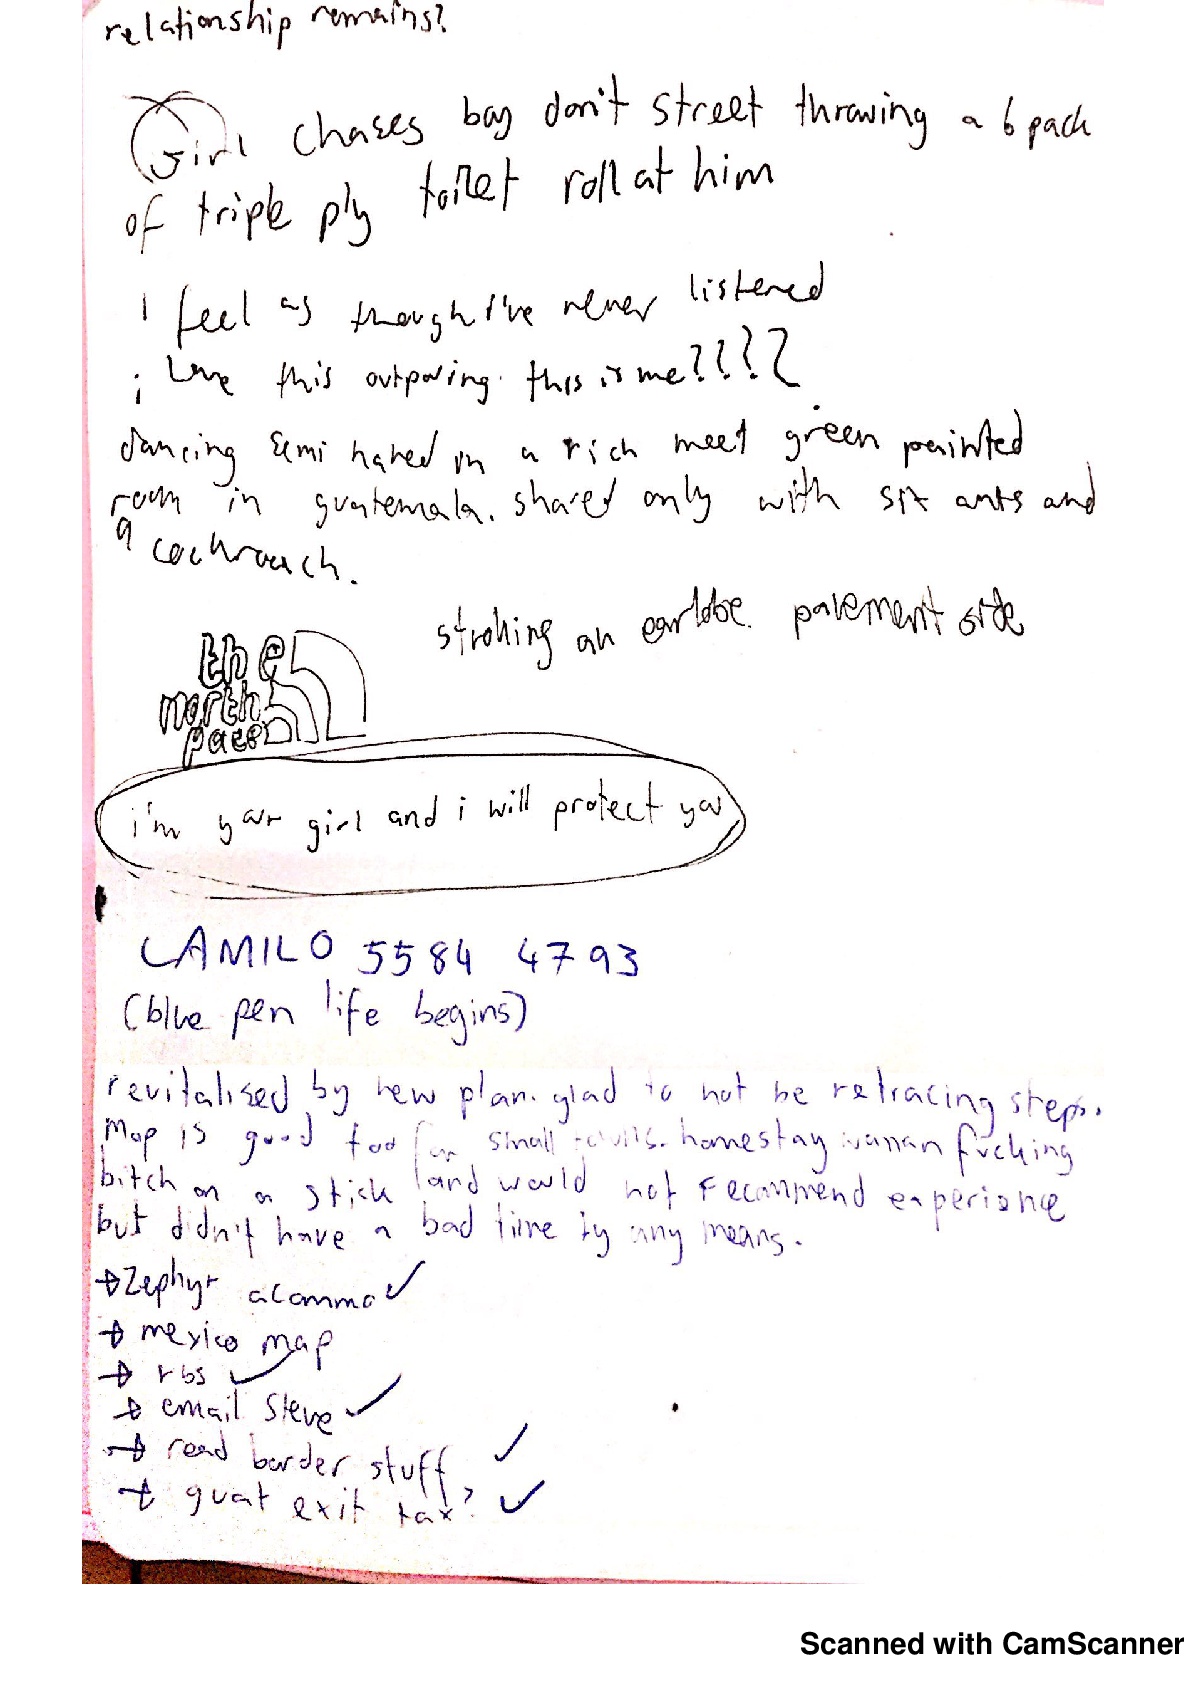 relationship remains?
Girl chases boy don't street throwing a 6 pack
of triple ply toilet roll at him
I feel as though I've never listened
i love this outpouring. this is me????
dancing semi naked in a rich meet green painted
room in guatemala. shared only with six ants and
a cockroach.
stroking an earlobe. pavement side
the
north
pacc
i'm your girl and i will protect you
CAMILO 5584 4793
(blue pen life begins)
revitalised by new plan. glad to not be retracing steps.
Map is good too for small towns. homestay woman fucking
bitch on a stick (and would not recommend experience
but didn't have a bad time by any means.
→ Zephyr acommo ✓
→ mexico map
→ rbs ✓
→ email Steve ✓
→ read border stuff ✓
→ guat exit tax? ✓
Scanned with CamScanner